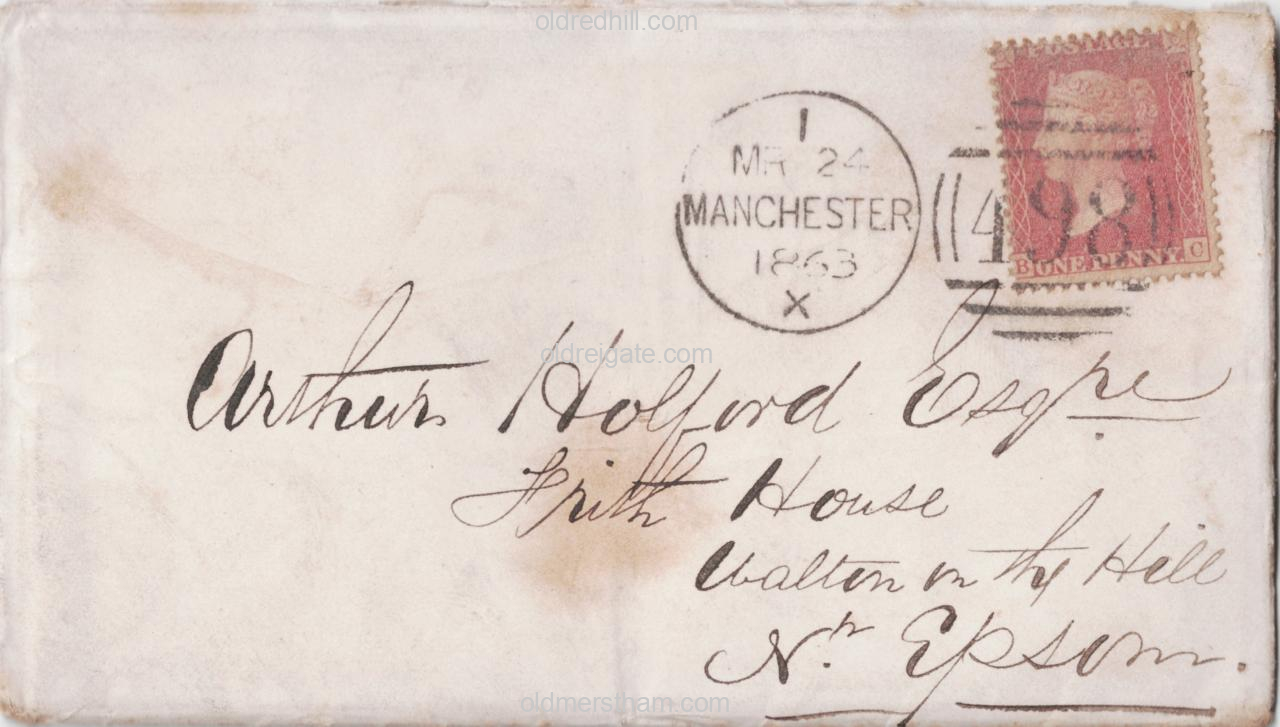 oldredhill.com
POSTAGE
1
MR 24
MANCHESTER
1863
X
498
B ONE PENNY. C
oldreigate.com
Arthur Holford Esqre
Frith House
Walton on the Hill
Nr. Epsom.
oldmerstham.com